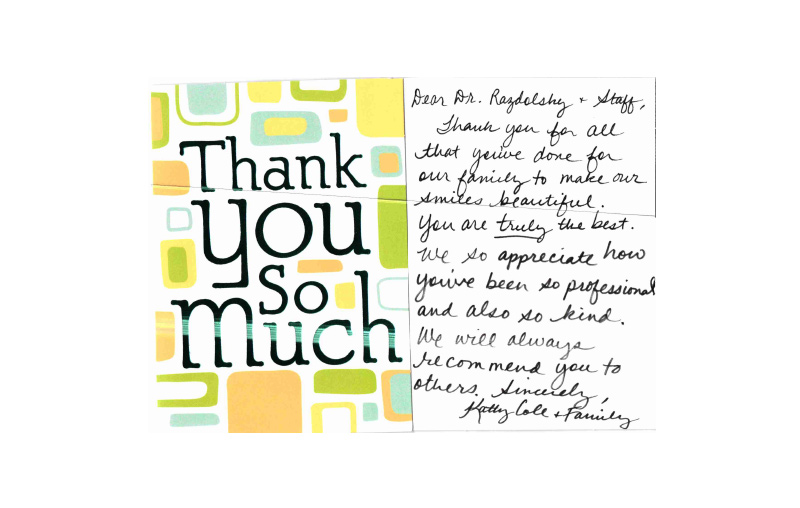 Thank
you
So
Much
Dear Dr. Razdolsky + Staff,
Thank you for all
that you've done for
our family to make our
smiles beautiful.
You are truly the best.
We so appreciate how
you've been so professional
and also so kind.
We will always
recommend you to
others. Sincerely,
Kathy Cole + Family